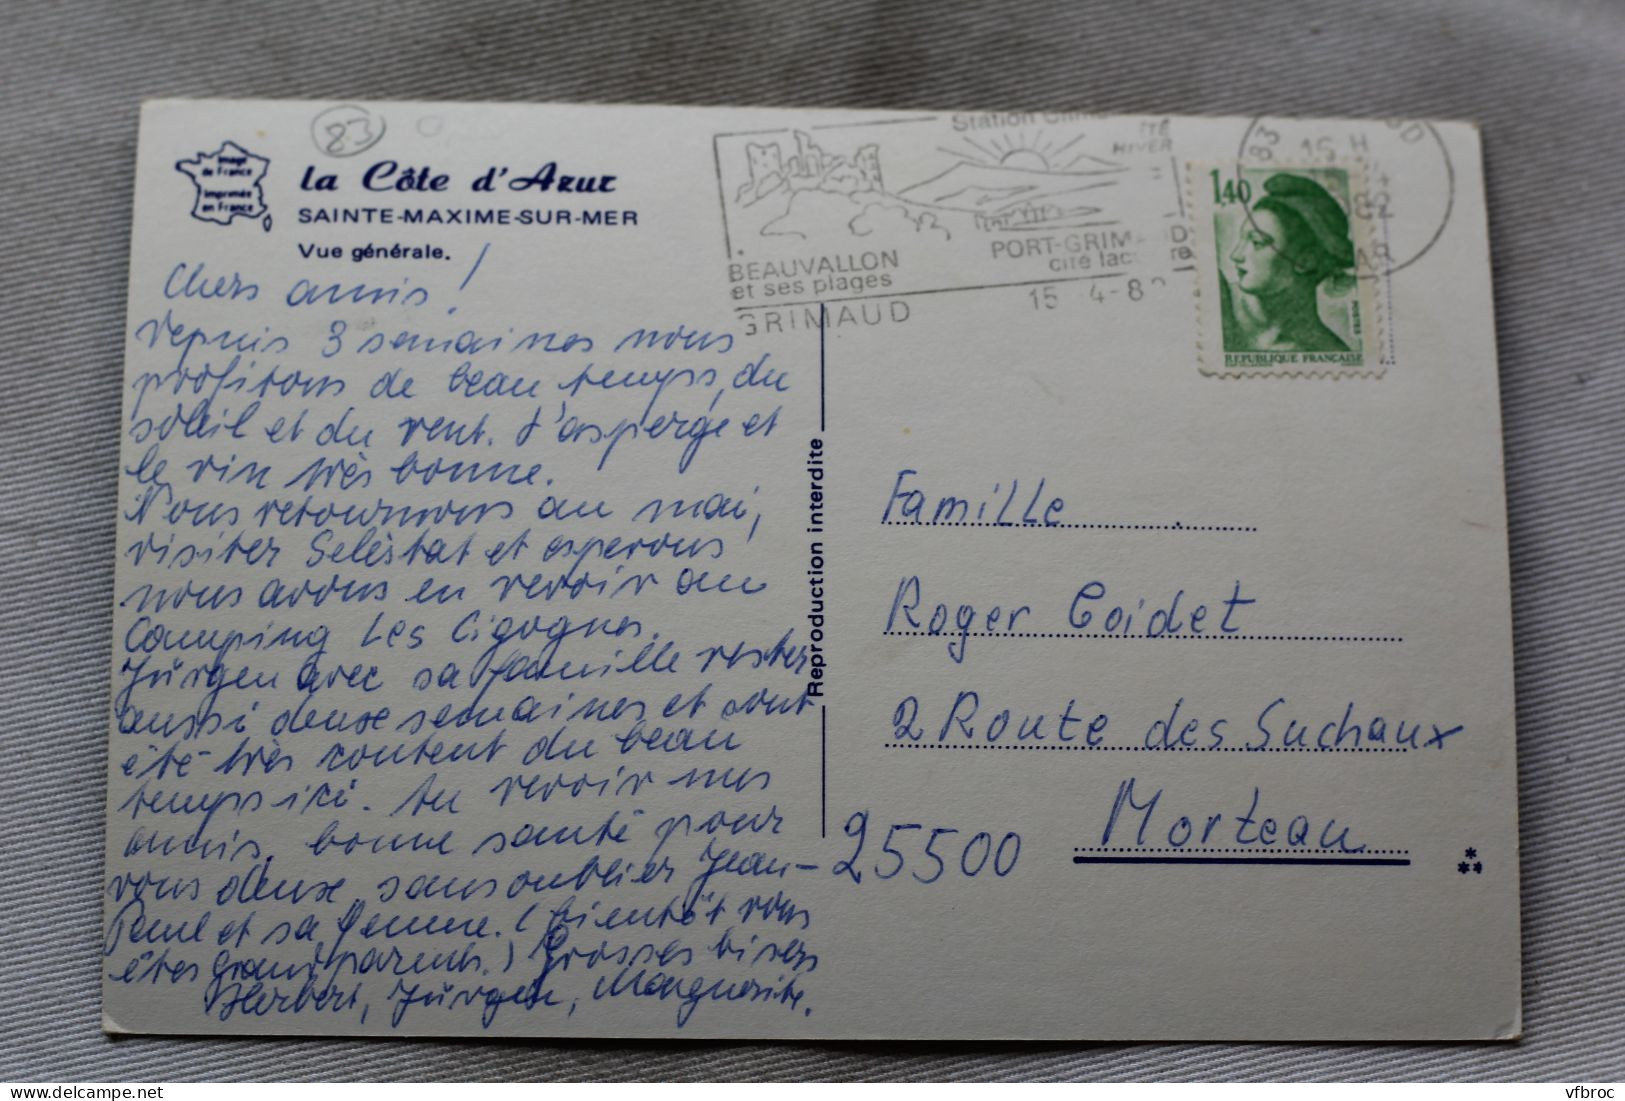 83
Image
de France
imprimée
en France
la Côte d'Azur
SAINTE-MAXIME-SUR-MER
Vue générale.
Chers amis!
Depuis 3 semaines nous
profitons de beau temps, du
soleil et du vent. L'asperge et
le vin très bonne.
Nous retournons au mai,
visiter Seléstat et esperons
nous avons en revoir au
Camping Les Cigognes.
Jürgen avec sa famille rester
aussi deux semaines et sont
été très content du beau
temps ici. Au revoir mes
amis, bonne santé pour
vous deux, sans oublier Jean-
Paul et sa femme. (bientôt vous
êtes grand parents.) Grosses bisers
Herbert, Jürgen, Marguerite.
Reproduction interdite
Station
ÉTÉ
HIVER
BEAUVALLON
et ses plages
PORT-GRIM
D
cité lac
re
GRIMAUD
15 -4-8
83
15 H
82
VAR
1,40
POSTES
REPUBLIQUE FRANÇAISE
Famille
Roger Coidet
2 Route des Suchaux
25500 Morteau
delcampe.net
vfbroc